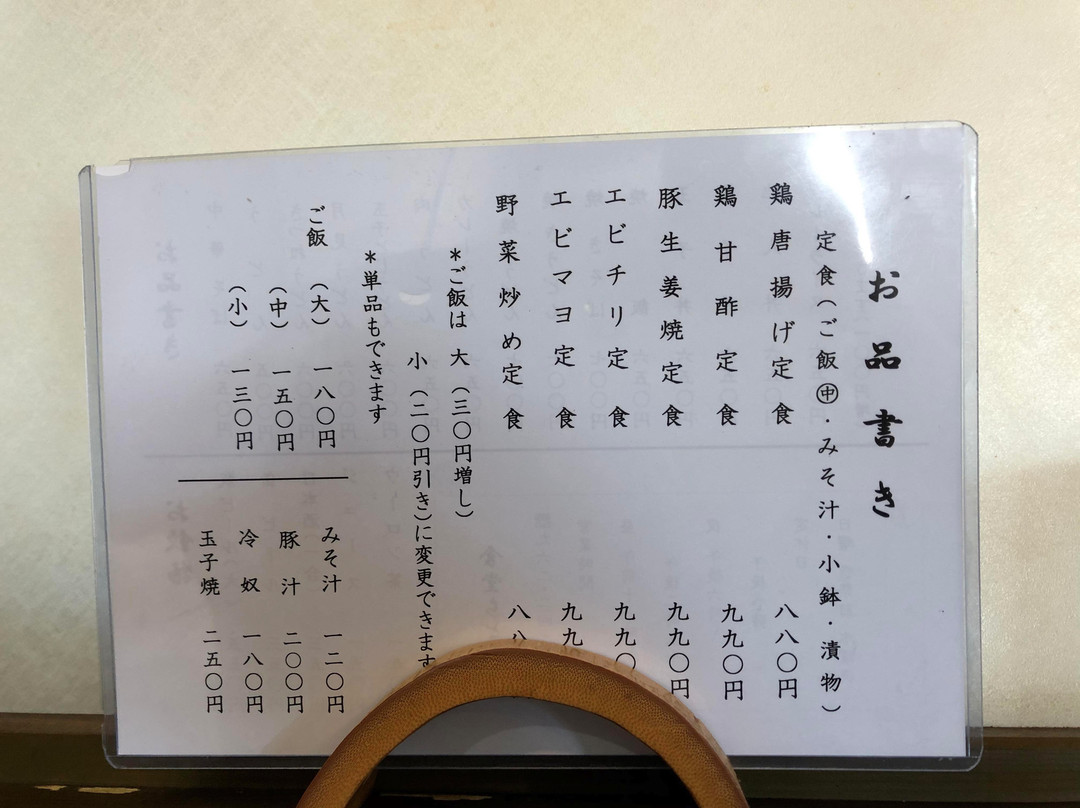 お品書き
定食(ご飯㊥・みそ汁・小鉢・漬物)
鶏唐揚げ定食 八八〇円
鶏甘酢定食 九九〇円
豚生姜焼定食 九九〇円
エビチリ定食 九九〇
エビマヨ定食 九九
野菜炒め定食 八八
*ご飯は 大(三〇円増し)
小(二〇円引き)に変更できます
*単品もできます
ご飯 (大) 一八〇円
(中) 一五〇円
(小) 一三〇円
みそ汁 一二〇円
豚汁 二〇〇円
冷奴 一八〇円
玉子焼 二五〇円